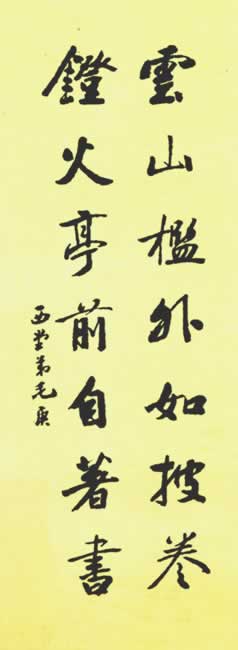 雲山檻外如披卷
鐙火亭前自著書
西堂弟毛庚